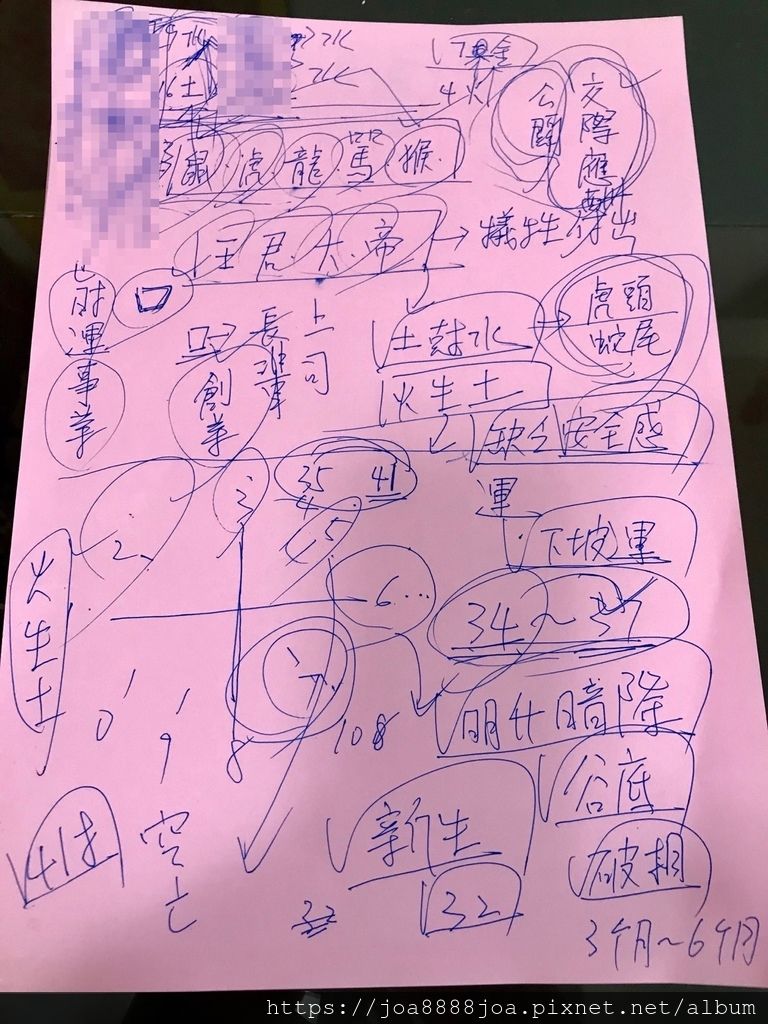 土
4火
公關
交際應酬
鼠 虎 龍 馬 猴
王君大帝 → 犧牲付出
財運
事業
口
創業
長進
上司
土尅水 → 虎頭蛇尾
火生土
缺乏安全感
運
下坡運
火生土
2
3
35 41
45
6
34~37
7
0 9 8 108
明升暗降
谷底
破相
3个月~6个月
新生
32
41才
空亡
https://joa8888joa.pixnet.net/album